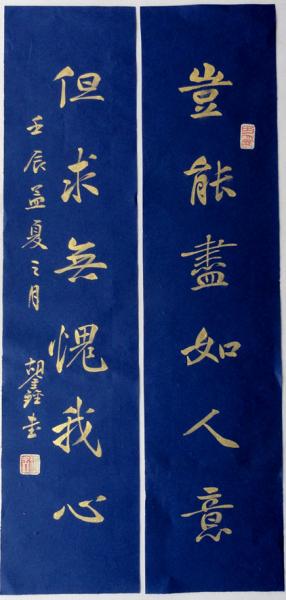 豈能盡如人意
但求無愧我心
壬辰孟夏之月